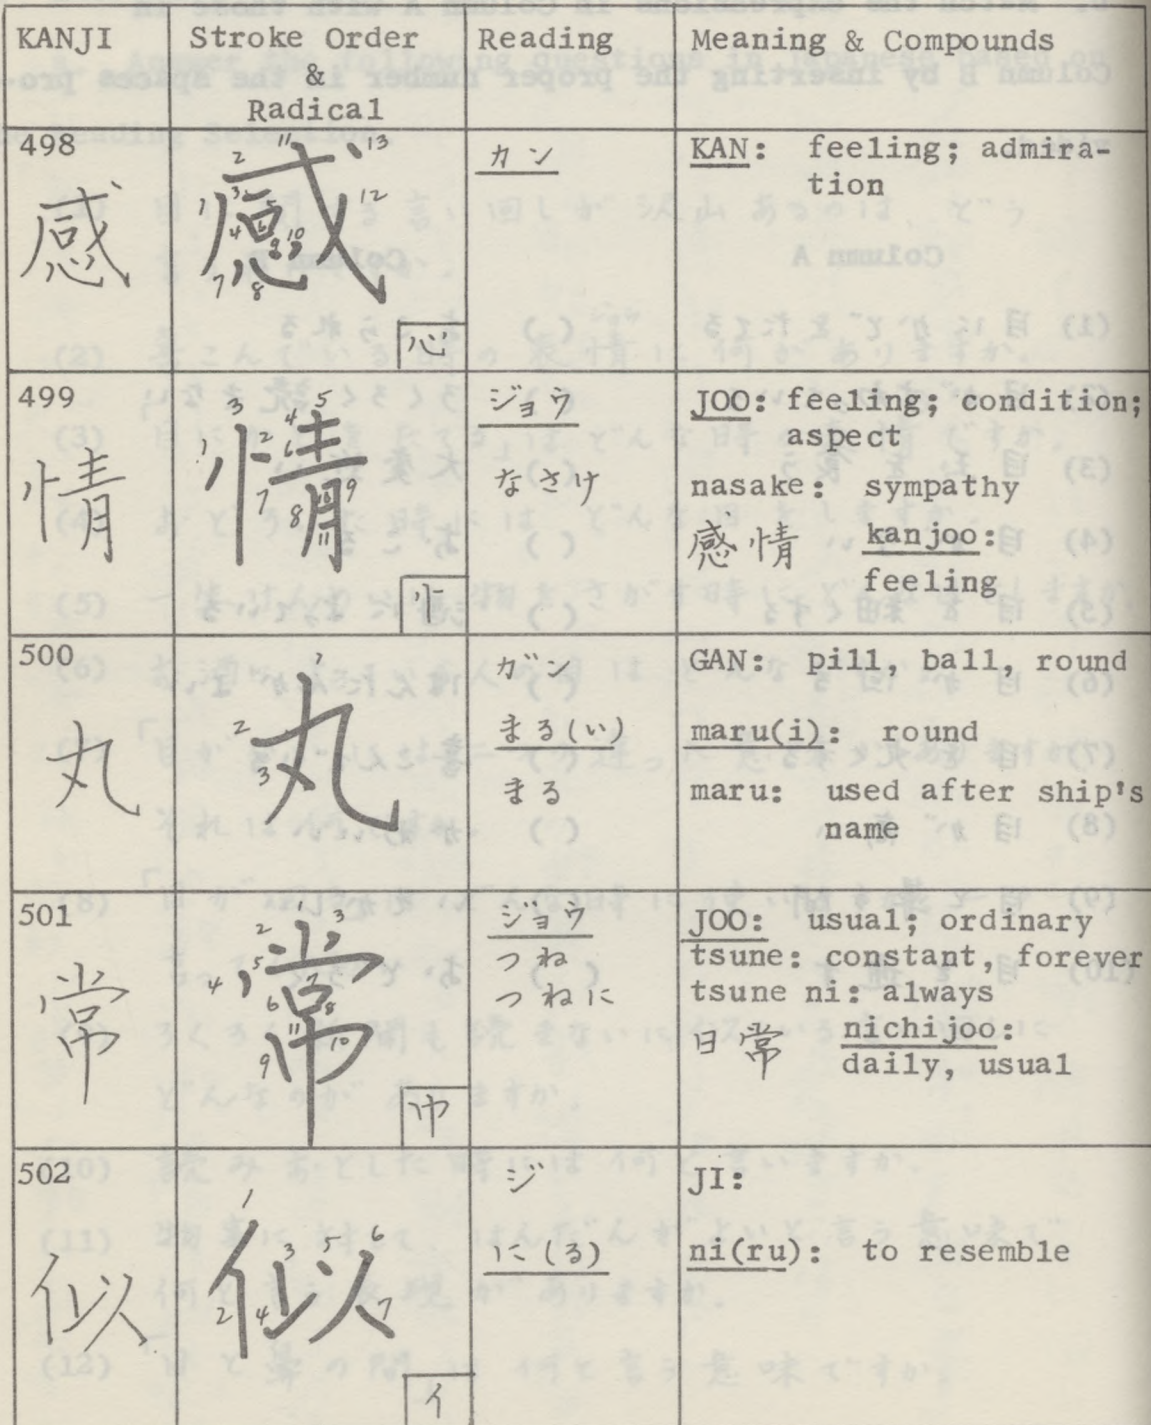 KANJI
Stroke Order
&
Radical
Reading
Meaning & Compounds
498
感
1 2 3 4 5 6 7 8 9 10 11 12 13
感
心
カン
KAN: feeling; admira-
tion
499
情
1 2 3 4 5 6 7 8 9 11
情
忄
ジョウ
なさけ
JOO: feeling; condition;
aspect
nasake: sympathy
感情 kanjoo:
feeling
500
丸
1 2 3
丸
ガン
まる(い)
まる
GAN: pill, ball, round
maru(i): round
maru: used after ship's
name
501
常
1 2 3 4 5 6 7 8 9 10 11
常
巾
ジョウ
つね
つねに
JOO: usual; ordinary
tsune: constant, forever
tsune ni: always
日常 nichijoo:
daily, usual
502
似
1 2 3 4 5 6 7
似
イ
ジ
に(る)
JI:
ni(ru): to resemble